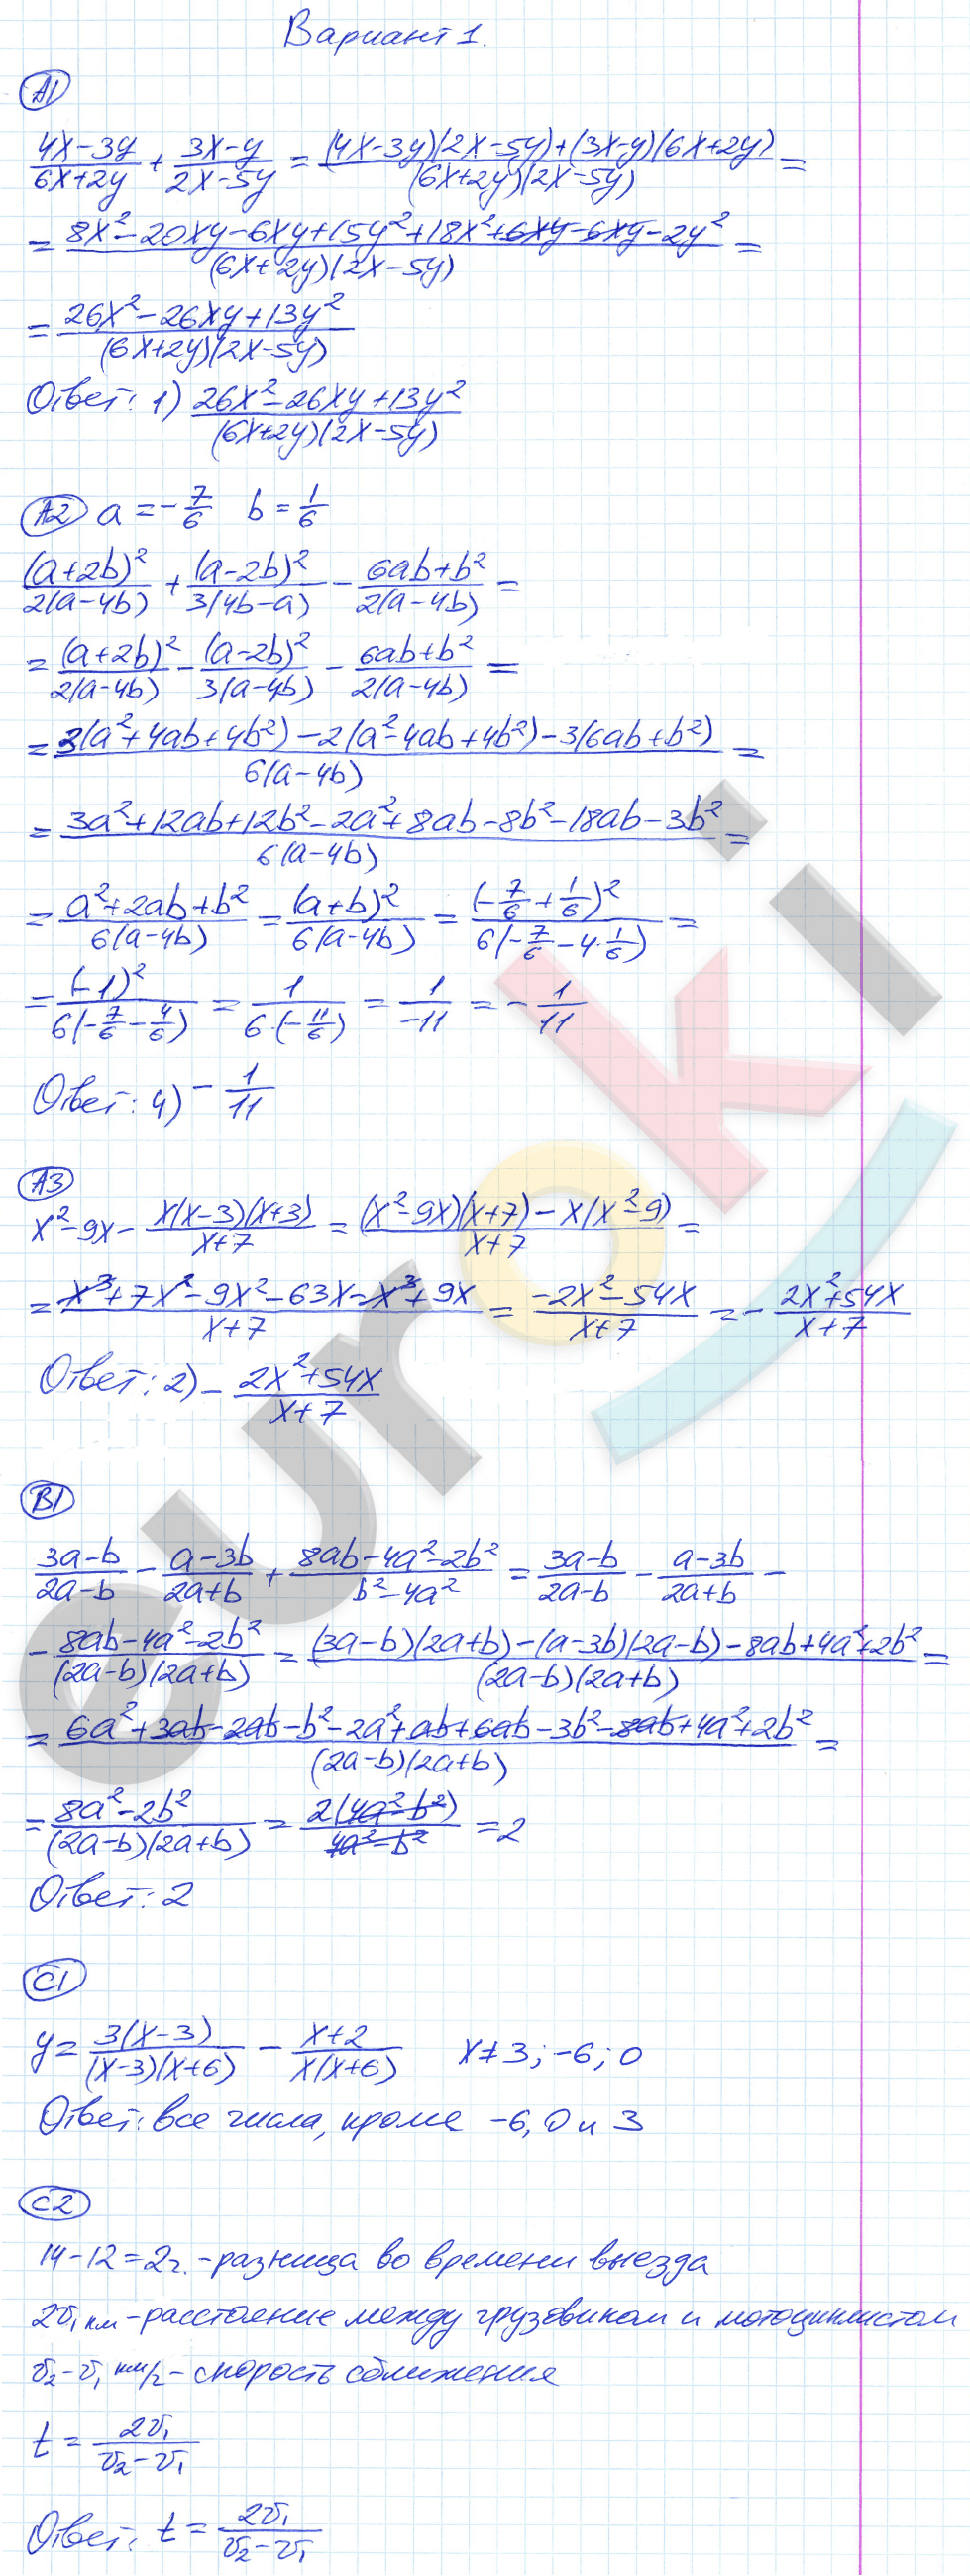 Вариант 1.
А1
(4x-3y)/(6x+2y) + (3x-y)/(2x-5y) = ((4x-3y)(2x-5y)+(3x-y)(6x+2y))/((6x+2y)(2x-5y)) =
= (8x²-20xy-6xy+15y²+18x²+6xy-6xy-2y²)/((6x+2y)(2x-5y)) =
= (26x²-26xy+13y²)/((6x+2y)(2x-5y))
Ответ: 1) (26x²-26xy+13y²)/((6x+2y)(2x-5y))
А2 a = -7/6 b = 1/6
(a+2b)²/(2(a-4b)) + (a-2b)²/(3(4b-a)) - (6ab+b²)/(2(a-4b)) =
= (a+2b)²/(2(a-4b)) - (a-2b)²/(3(a-4b)) - (6ab+b²)/(2(a-4b)) =
= (3(a²+4ab+4b²)-2(a²-4ab+4b²)-3(6ab+b²))/(6(a-4b)) =
= (3a²+12ab+12b²-2a²+8ab-8b²-18ab-3b²)/(6(a-4b)) =
= (a²+2ab+b²)/(6(a-4b)) = (a+b)²/(6(a-4b)) = (-7/6+1/6)²/(6(-7/6-4·1/6)) =
= (-1)²/(6(-7/6-4/6)) = 1/(6·(-11/6)) = 1/-11 = -1/11
Ответ: 4) -1/11
А3
x²-9x - x(x-3)(x+3)/(x+7) = ((x²-9x)(x+7)-x(x²-9))/(x+7) =
= (x³+7x²-9x²-63x-x³+9x)/(x+7) = (-2x²-54x)/(x+7) = -(2x²+54x)/(x+7)
Ответ: 2) -(2x²+54x)/(x+7)
В1
(3a-b)/(2a-b) - (a-3b)/(2a+b) + (8ab-4a²-2b²)/(b²-4a²) = (3a-b)/(2a-b) - (a-3b)/(2a+b) -
- (8ab-4a²-2b²)/((2a-b)(2a+b)) = ((3a-b)(2a+b)-(a-3b)(2a-b)-8ab+4a²+2b²)/((2a-b)(2a+b)) =
= (6a²+3ab-2ab-b²-2a²+ab+6ab-3b²-8ab+4a²+2b²)/((2a-b)(2a+b)) =
= (8a²-2b²)/((2a-b)(2a+b)) = 2(4a²-b²)/(4a²-b²) = 2
Ответ: 2
С1
y = 3(x-3)/((x-3)(x+6)) - (x+2)/(x(x+6)) x≠3; -6; 0
Ответ: все числа, кроме -6, 0 и 3
С2
14-12=2ч. - разница во времени выезда
2v₁ км - расстояние между грузовиком и мотоциклистом
v₂-v₁ км/ч - скорость сближения
t = 2v₁/(v₂-v₁)
Ответ: t = 2v₁/(v₂-v₁)
euroki